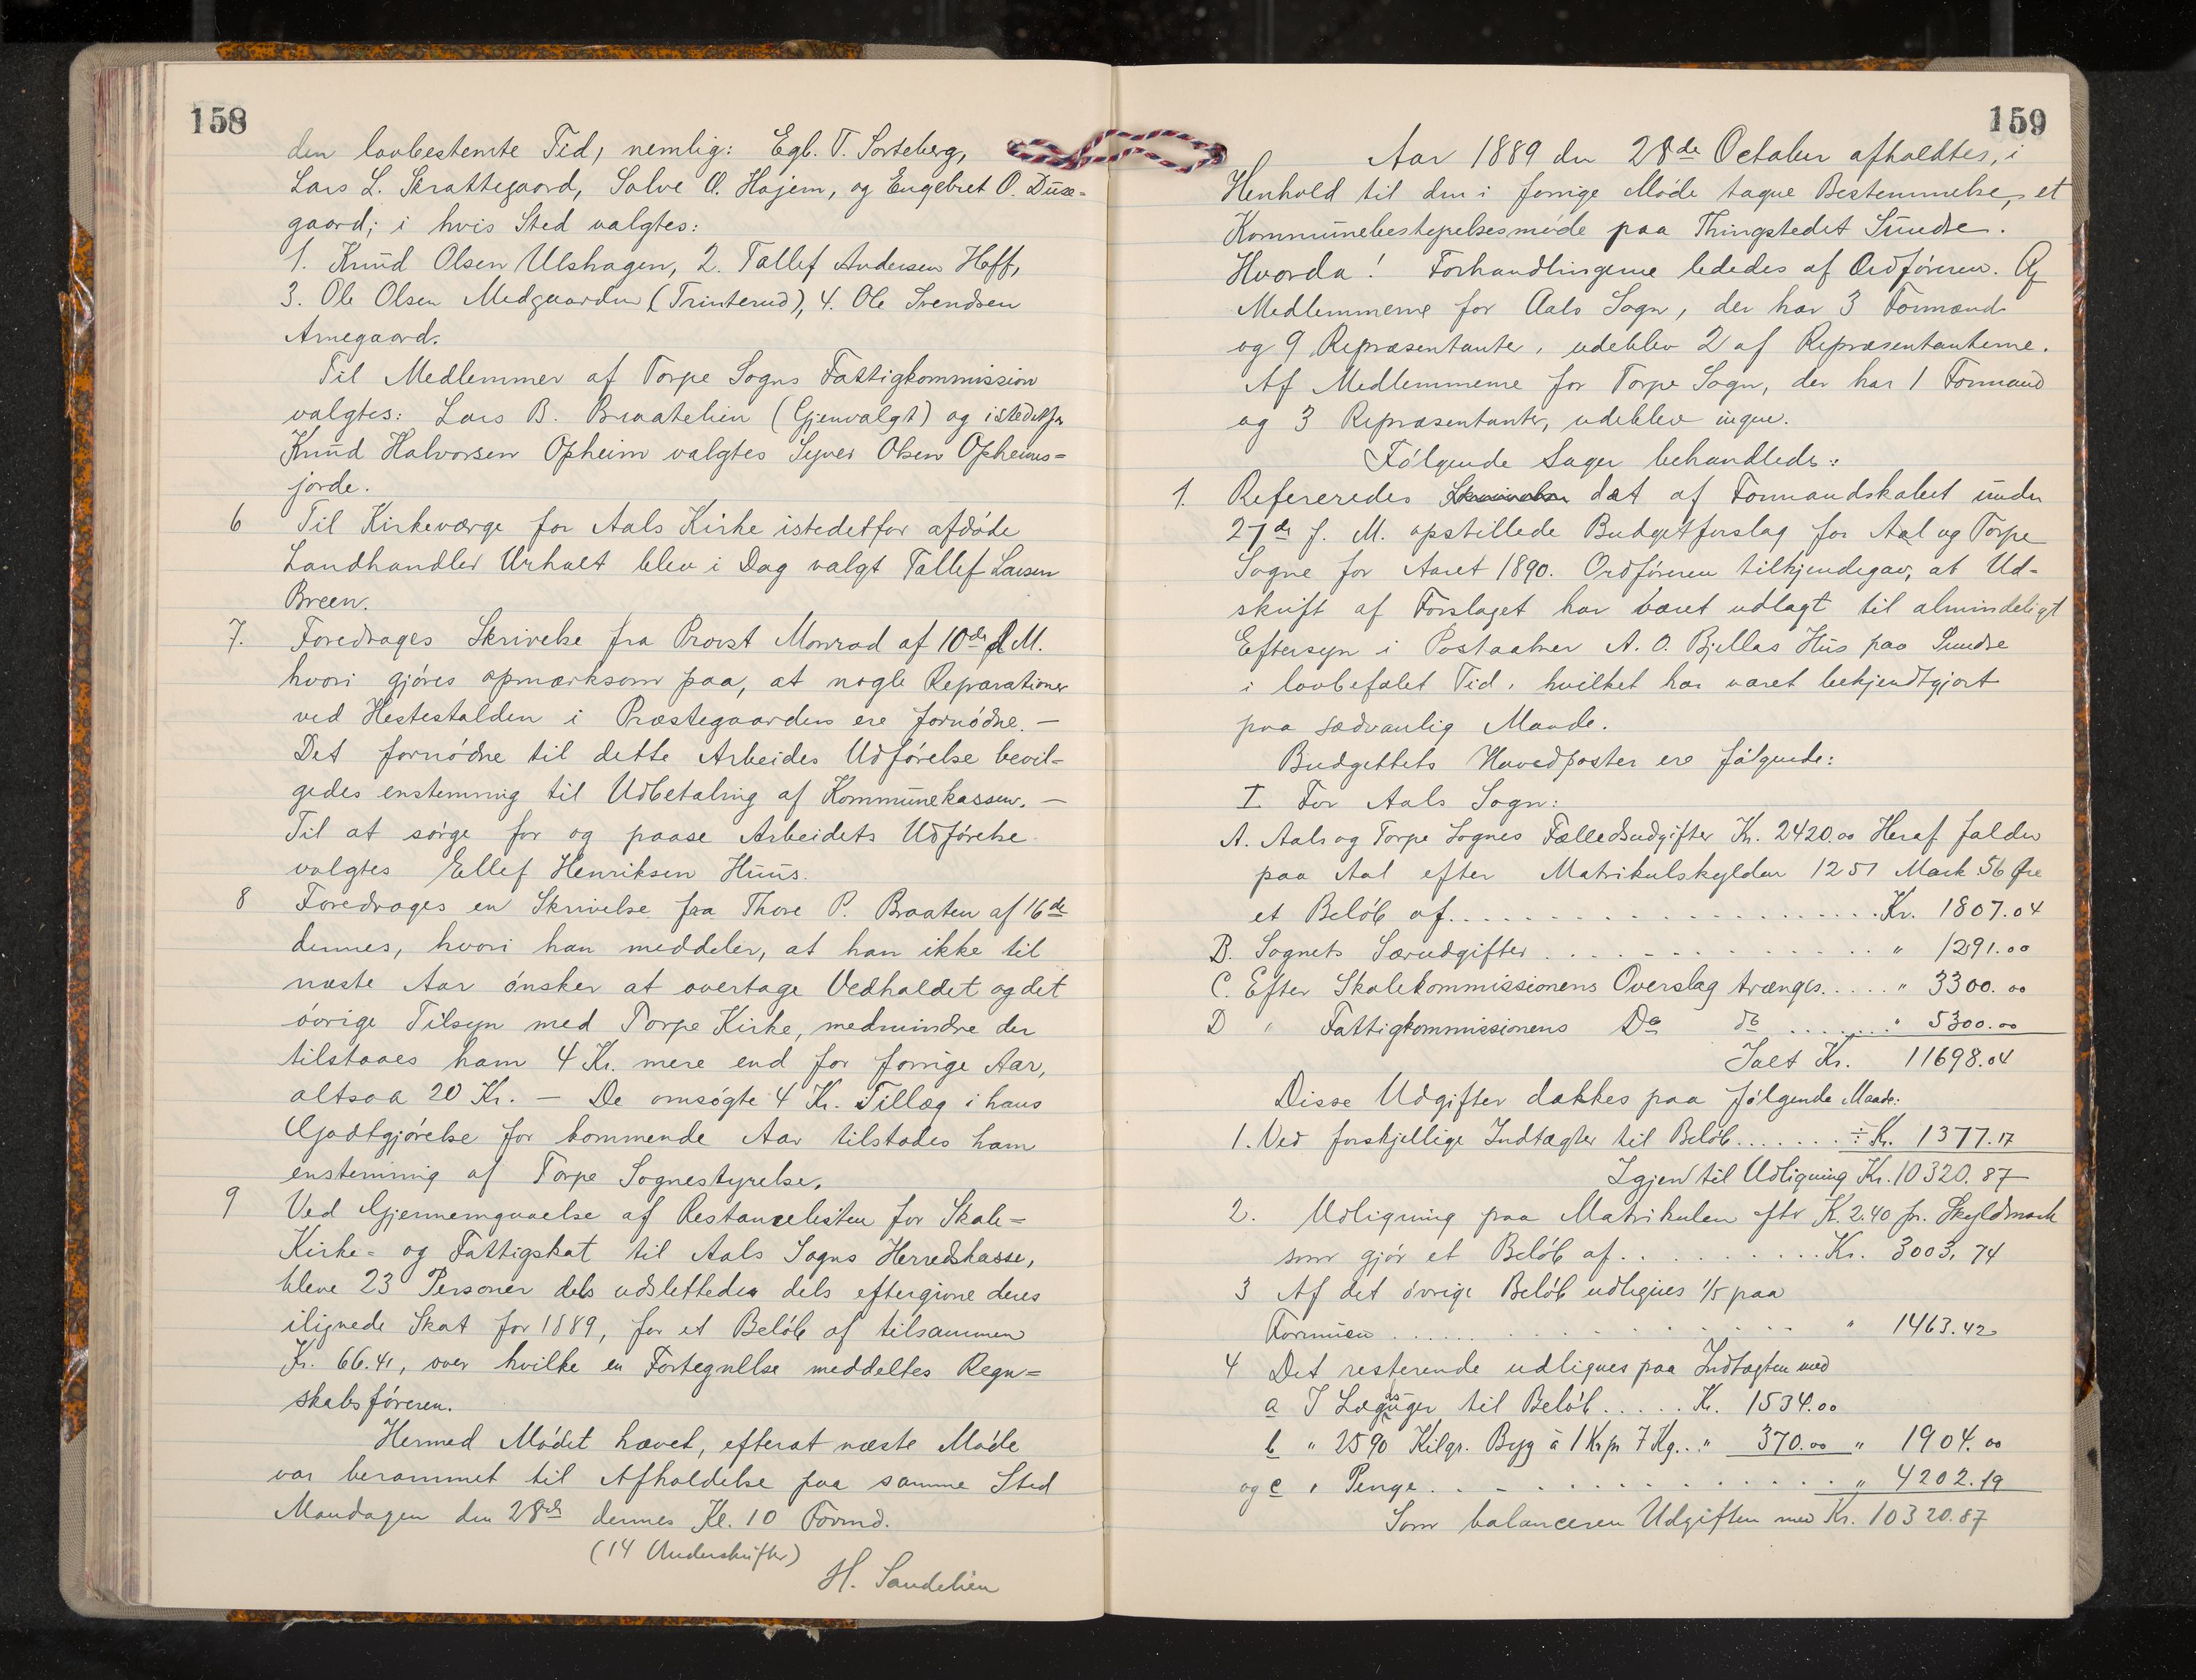 158
den lovbestemte Tid, nemlig: Egb. T. Sorteberg,
Lars L. Skrattegaard, Solve O. Hojem, og Engebret O. Duse-
gaard; i hvis Sted valgtes:
1. Knud Olsen Ulshagen, 2. Tollef Andersen Hoff,
3. Ole Olsen Medgaarden (Trinterud), 4. Ole Svendsen
Arnegaard.
Til Medlemmer af Torpe Sogns Fattigkommission
valgtes: Lars B. Braatelien (Gjenvalgt) og istedetfor
Knud Halvorsen Opheim valgtes Syver Olsen Opheims=
jorde.
6 Til Kirkeværge for Aals Kirke istedetfor afdøde
Landhandler Urholt blev i Dag valgt Tollef Larsen
Breen.
7. Foredroges Skrivelse fra Provst Monrad af 10de d. M.
hvori gjøres opmærksom paa, at nogle Reparationer
ved Hestestalden i Præstegaarden ere fornødne. —
Det fornødne til dette Arbeides Udførelse bevil=
gedes enstemmig til Udbetaling af Kommunekassen. —
Til at sørge for og paase Arbeidets Udførelse
valgtes Ellef Henriksen Huus.
8 Foredroges en Skrivelse fra Thore P. Braaten af 16de
dennes, hvori han meddeler, at han ikke til
næste Aar ønsker at overtage Vedholdet og det
øvrige Tilsyn med Torpe Kirke, medmindre der
tilstaaes ham 4 Kr. mere end for forrige Aar,
altsaa 20 Kr. — De omsøgte 4 Kr. Tillæg i hans
Godtgjørelse for kommende Aar tilstodes ham
enstemmig af Torpe Sognestyrelse.
9 Ved Gjennemgaaelse af Restancelisten for Skole=
Kirke= og Fattigskat til Aals Sogns Herredskasse,
bleve 23 Personer dels udslettede, dels eftergivne deres
ilignede Skat for 1889, for et Beløb af tilsammen
Kr. 66.41, over hvilke en Fortegnelse meddeltes Regn=
skabsføreren.
Hermed Mødet hævet, efterat næste Møde
var berammet til Afholdelse paa samme Sted
Mandagen den 28de dennes Kl. 10 Formd.
(14 Underskrifter)
H. Sandelien
159
Aar 1889 den 28de October afholdtes, i
Henhold til den i forrige Møde tagne Bestemmelse, et
Kommunebestyrelsesmøde paa Thingstedet Sundre.
Hvorda! Forhandlingerne lededes af Ordføreren. Af
Medlemmerne for Aals Sogn, der har 3 Formænd
og 9 Repræsentanter, udeblev 2 af Repræsentanterne.
Af Medlemmerne for Torpe Sogn, der har 1 Formand
og 3 Repræsentanter, udeblev ingen.
Følgende Sager behandledes:
1. Refereredes det af Formandskabet under
27de f. M. opstillede Budgetforslag for Aal og Torpe
Sogne for Aaret 1890. Ordføreren tilkjendegav, at Ud-
skrift af Forslaget har været udlagt til almindeligt
Eftersyn i Postaabner A. O. Bjellas Hus paa Sundre
i lovbefalet Tid, hvilket har været bekjendtgjort
paa sædvanlig Maade.
Budgettets Hovedposter ere følgende:
I For Aals Sogn:
A. Aals og Torpe Sognes Fællesudgifter Kr. 2420.00 Heraf falder
paa Aal efter Matrikulskylden 1251 Mark 56 Øre
et Beløb af . . . . . . . Kr. 1807.04
B. Sognets Særudgifter . . . . . . " 1291.00
C. Efter Skolekommissionens Overslag trænges . . . . . " 3300.00
D " Fattigkommissionens Do do . . . . . " 5300.00
Ialt Kr. 11698.04
Disse Udgifter dækkes paa følgende Maade:
1. Ved forskjellige Indtægter til Beløb . . . . . . . ÷ Kr. 1377.17
Igjen til Udligning Kr. 10320.87
2. Udligning paa Matrikulen eftr K. 2.40 pr. Skyldmark
som gjør et Beløb af . . . . . . . Kr. 3003.74
3 Af det øvrige Beløb udlignes 1/5 paa
Formuen . . . . . . . " 1463.42
4 Det resterende udlignes paa Indtægten med
a I Lægdsuger til Beløb . . . . . Kr. 1534.00
b " 2590 Kilgr. Byg à 1 Kr pr 7 Kg. . . " 370.00 " 1904.00
og c " Penge . . . . . . . " 4202.19
Som balancerer Udgiften med Kr. 10320.87